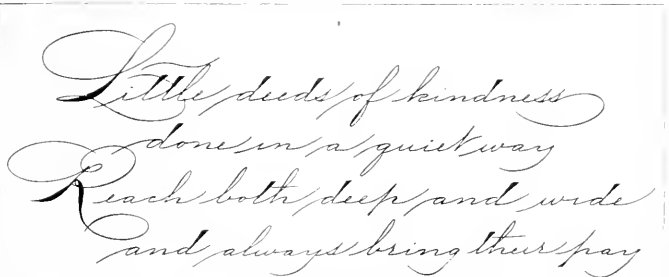 Little deeds of kindness
done in a quiet way
Reach both deep and wide
and always bring their pay